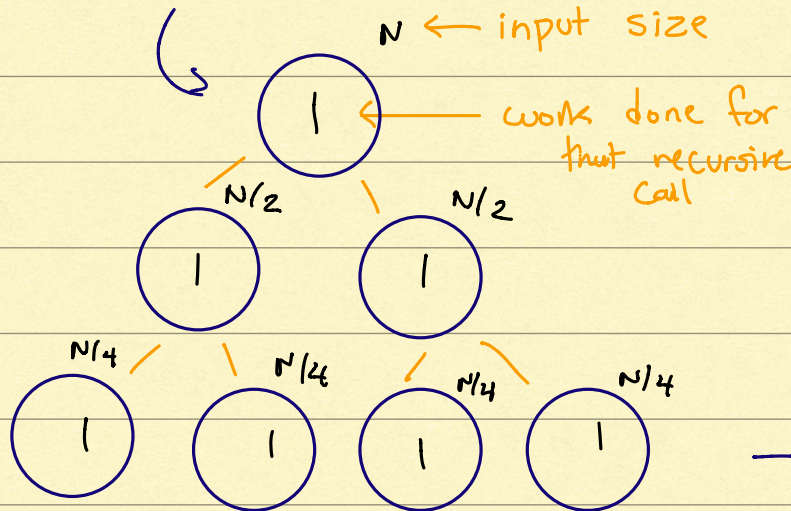 N ← input size
1 ← work done for
that recursive
call
N/2 N/2
1 1
N/4 N/4 N/4 N/4
1 1 1 1